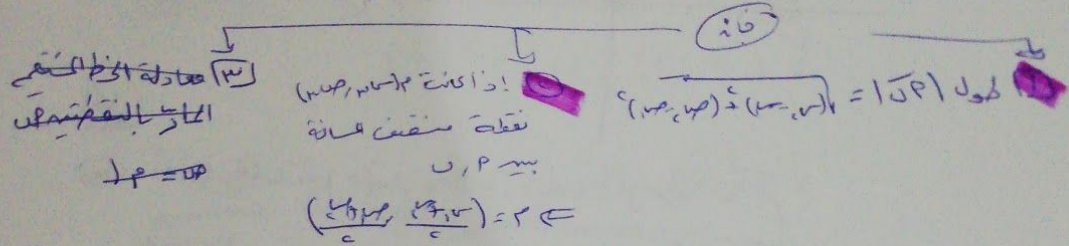 فإن
١ طول |م ن| = √(س٢ - س١)٢ + (ص٢ - ص١)٢
٢ إذا كانت م (س٣, ص٣)
نقطة منتصف المسافة
بين م, ن
⇐ م = (س١ + س٢ / ٢ , ص١ + ص٢ / ٢)
٣ معادلة الخط المستقيم
المار بالنقطتين